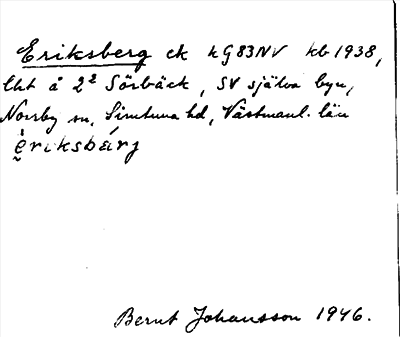 Eriksberg ek kG83NV kb 1938,
lht å 2² Sörbäck, SV själva byn,
Norrby sn. Simtuna hd, Västmanl. län
èriksbárj
Bernt Johansson 1946.